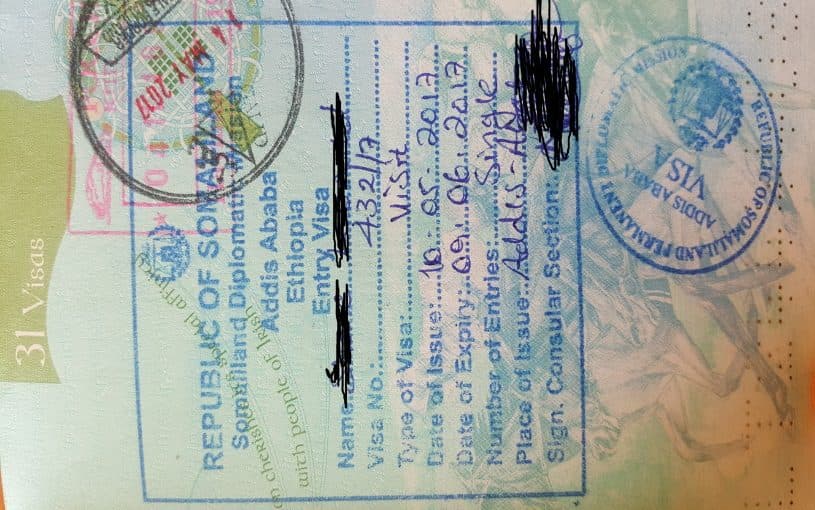 REPUBLIC OF SOMALILAND
Somaliland Diplomatic Mission
Addis Ababa
Ethiopia
Entry Visa
Name:
Visa No.: 432/17
Type of Visa: Visit
Date of Issue: 10.05.2017
Date of Expiry: 09.06.2017
Number of Entries: Single
Place of Issue: Addis-
Sign. Consular Section:
REPUBLIC OF SOMALILAND PERMANENT DIPLOMATIC MISSION
ADDIS ABABA
VISA
MAY 2017
31 Visas
cherishes
special affinity
with people of Irish